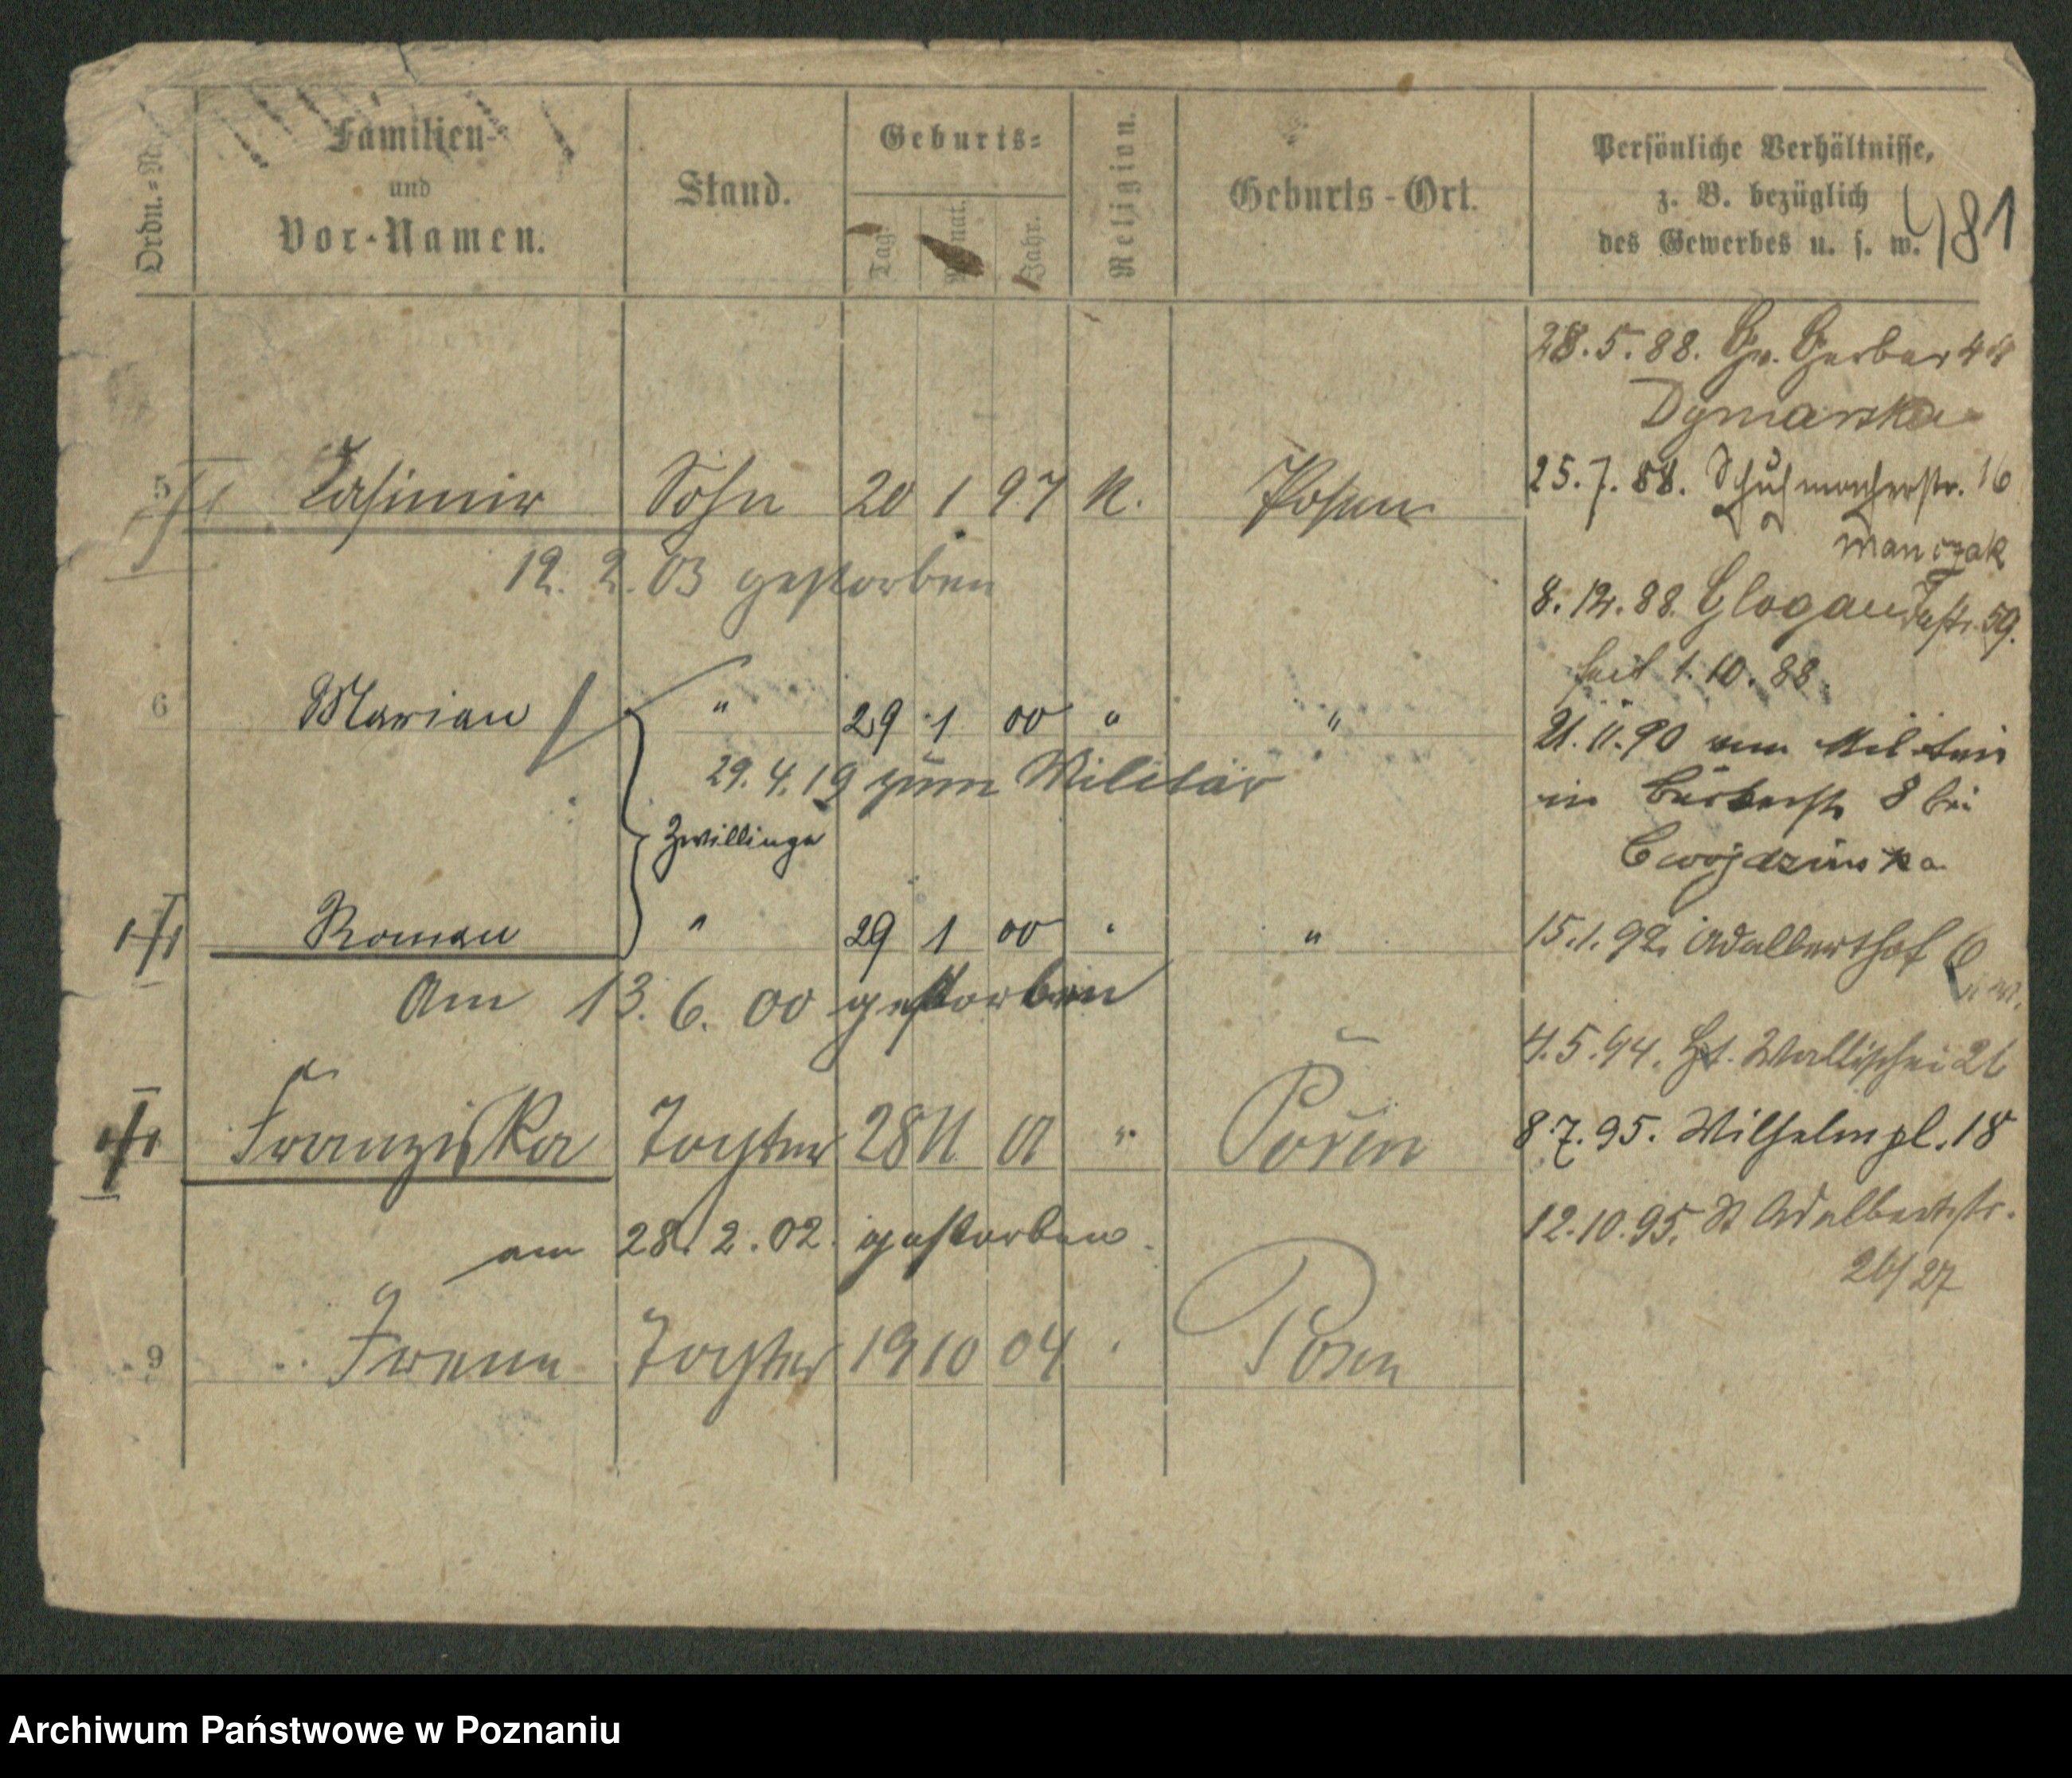 Ordn.=N.
Familien-
und
Vor-Namen.
Stand.
Geburts=
Tag.
Monat.
Jahr.
Religion.
Geburts-Ort.
Persönliche Verhältnisse,
z. B. bezüglich
des Gewerbes u. s. w.
481
28.5.88. Gr. Gerber 44
Dymarska
5 Casimir Sohn 20 1 97 K. Posen
25.7.88. Schuhmacherstr. 16
Manczak
12. 2. 03 gestorben
8.12.88. Glogauerstr. 59.
seit 1.10.88.
6 Marian " 29 1 00 " "
21.11.90 vom Militair
29.4.19 zum Militär
in Bäckerstr 8 bei
Zwillinge
Cwojdzinska
Roman " 29 1 00 " "
15.1.92. Adalberthof 6
Am 13. 6. 00 gestorben
4.5.94. Wallischei 26
Franziska Tochter 28 11 01 " Posen
8.7.95. Wilhelmpl. 18
am 28. 2. 02. gestorben.
12.10.95. St Adalbertstr.
26/27
9 Irene Tochter 19 10 04 " Posen
Archiwum Państwowe w Poznaniu